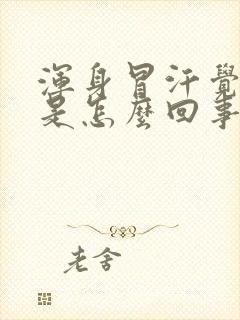 渾身冒汗覺
是怎麼回事
老舍